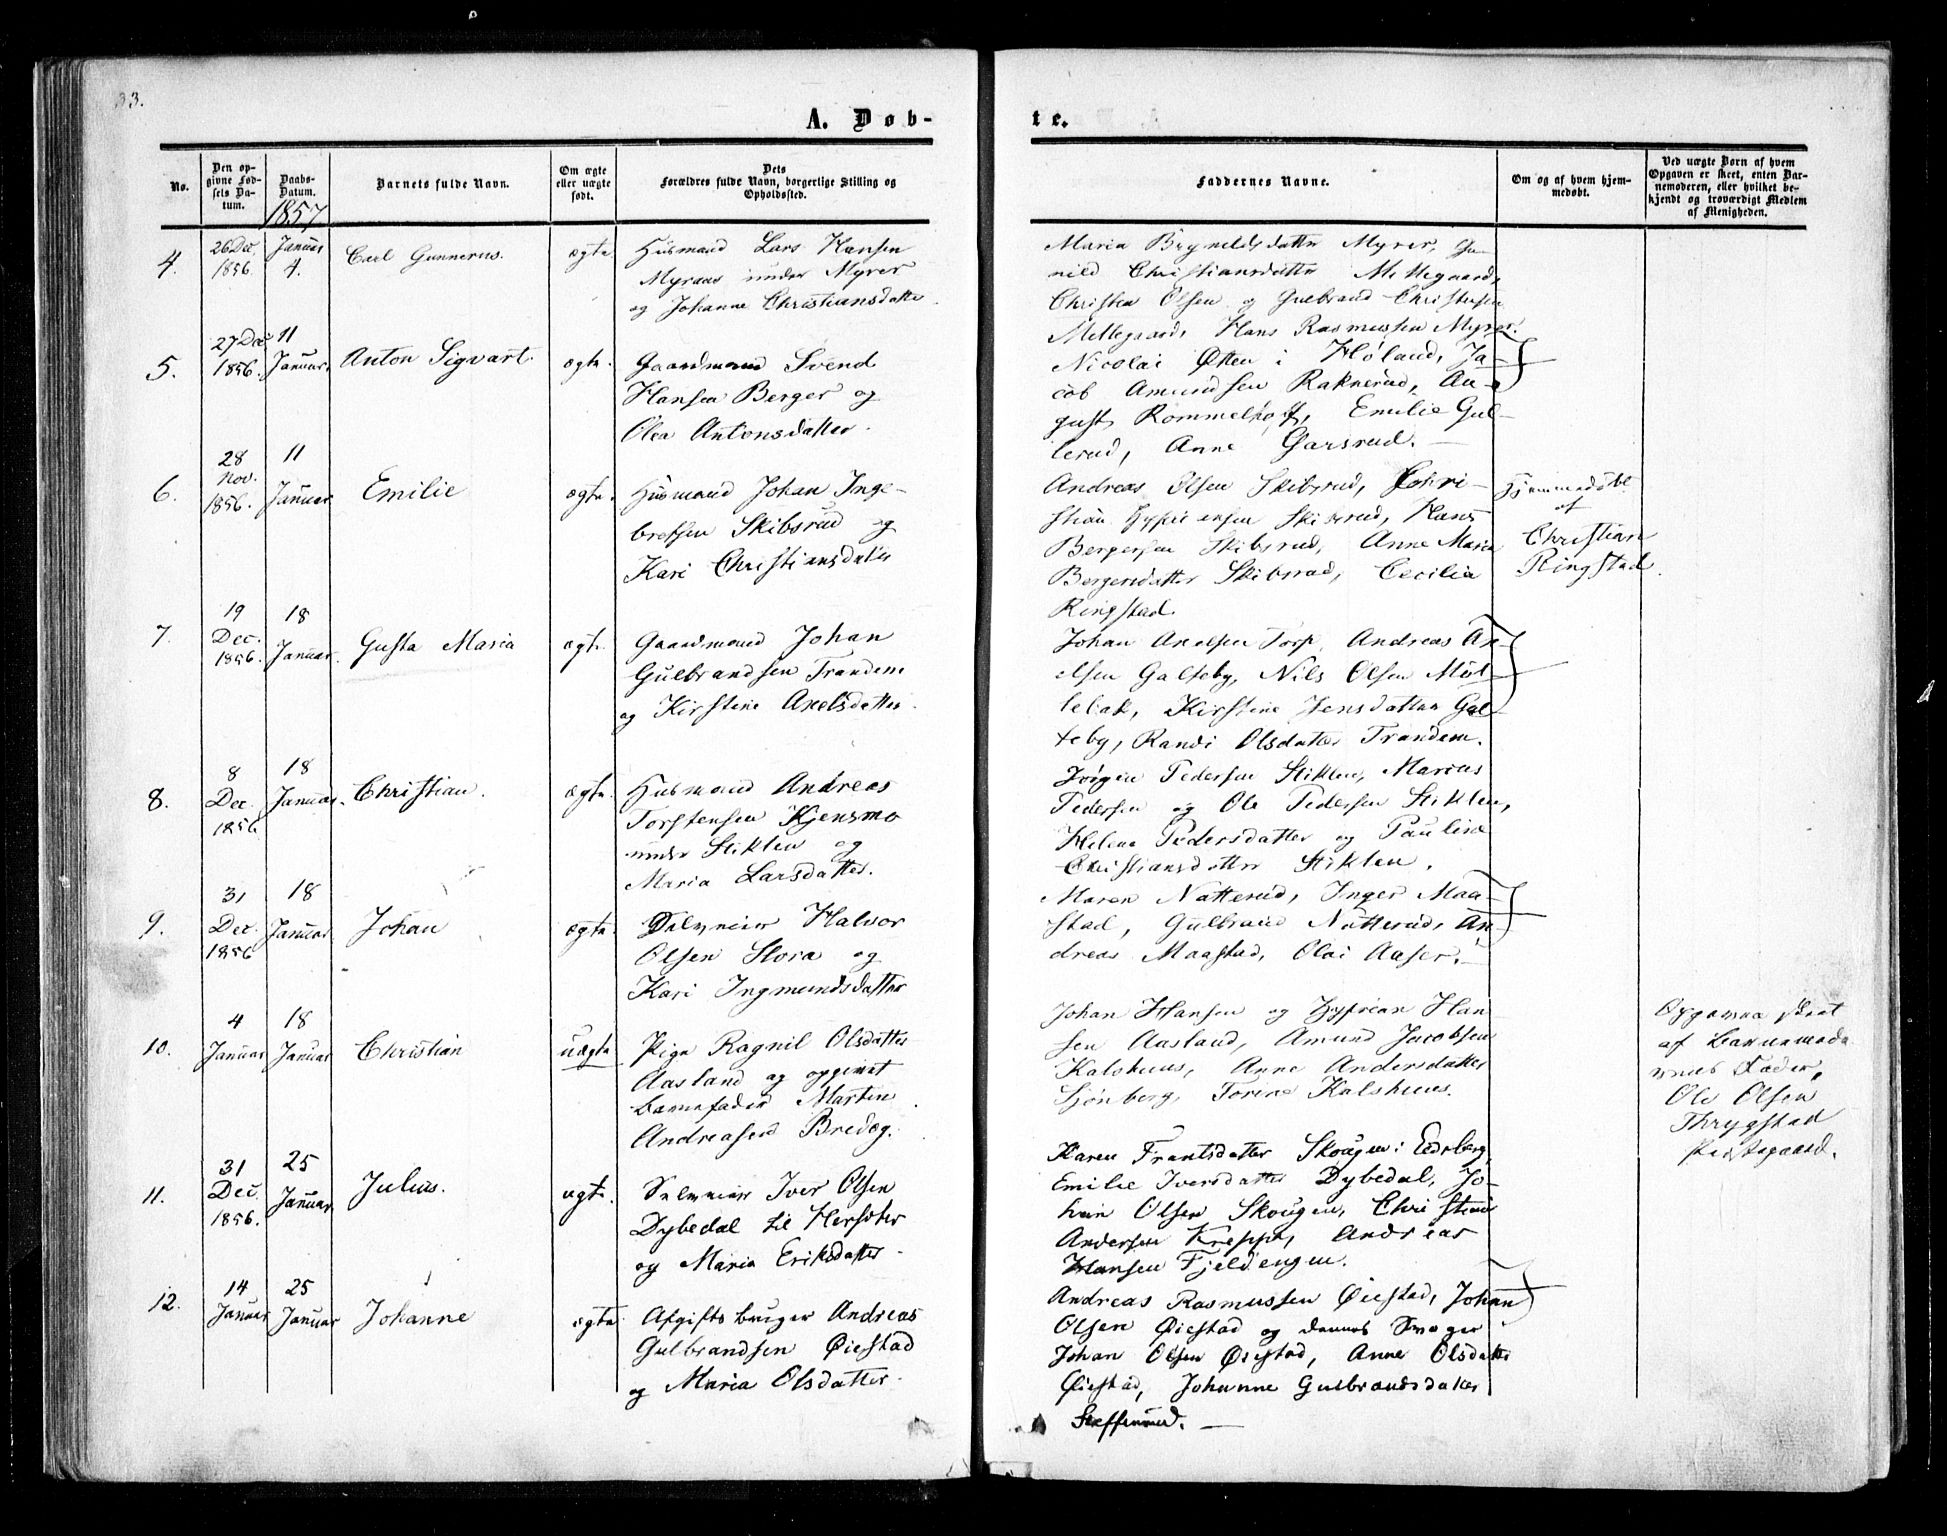 33.
A. Døb-
te.
No.
Den op-
givne Fød-
sels Da-
tum.
Daabs-
Datum.
1857
Barnets fulde Navn.
Om ægte
eller uægte
født.
Dets
Forældres fulde Navn, borgerlige Stilling og
Opholdssted.
Faddernes Navne.
Om og af hvem hjem-
medøbt.
Ved uægte Børn af hvem
Opgaven er skeet, enten Bar-
nemoderen, eller hvilket be-
kjendt og troværdigt Medlem
af Menigheden.
4.
26 Dec.
1856.
Januar
4.
Carl Gunnerus.
ægte
Husmand Lars Hansen
Myraas under Myrer
og Johanne Christiansdatter.
Maria Brynildsdatter Myrer, Gu-
nild Christiansdatter Mellegaard,
Christen Olsen og Gulbrand Christensen
Mellegaard, Hans Rasmussen Myrer.
5.
27 Dec
1856.
11
Januar.
Anton Sigvart.
ægte.
Gaardmand Svend
Hansen Berger og
Olea Antonsdatter.
Nicolai Otten i Høland, Ja-
cob Amundsen Raknerud, Au-
gust Rommelhoff, Emilie Gul-
lerud, Anne Garsrud.
6.
28
Nov.
1856.
11
Januar
Emilie
ægte.
Husmand Johan Inge-
bretsen Skibsrud og
Kari Christiansdatter
Andreas Olsen Skibsrud, Chri-
stian Zypriensen Skibsrud, Hans
Bergersen Skibsrud, Anne Maria
Bergersdatter Skibsrud, Cecilia
Ringstad.
Hjemmedøbt
af
Christian
Ringstad.
7.
19
Dec.
1856.
18
Januar.
Gusta Maria
ægte.
Gaardmand Johan
Gulbrandsen Trandem
og Kirstine Axelsdatter.
Johan Axelsen Torp, Andreas Ax-
elsen Galteby, Nils Olsen Møl-
lebak, Kirstine Jensdatter Gal-
teby, Randi Olsdatter Trandem.
8.
8
Dec.
1856
18
Januar.
Christian.
ægte.
Husmand Andreas
Torstensen Kjensmo
under Stiklen og
Maria Larsdatter.
Jørgen Pedersen Stiklen, Marius
Pedersen og Ole Pedersen Stiklen,
Helene Pedersdatter og Pauline
Christiansdatter Stiklen.
9.
31
Dec.
1856
18
Januar
Johan
ægte.
Selveier Halvor
Olsen Stora og
Kari Ingmundsdatter
Maren Natterud, Inger Maa-
stad, Gulbrand Natterud, An-
dreas Maastad, Olai Aaser.
10.
4
Januar
18
Januar
Christian
uægte
Pige Ragnil Olsdatter
Aasland og opgivet
Barnefader Martin
Andreasen Bredeg.
Johan Hansen og Zyprian Han-
sen Aasland, Amund Jacobsen
Kalshuus, Anne Andersdatter
Sjønberg, Torine Kalshuus.
Opgaven skeet
af Barnemode
rens Fader,
Ole Olsen
Thrygstad
Præstegaard.
11.
31
Dec.
1856.
25
Januar
Julius.
ægte.
Selveier Iver Olsen
Dybedal til Hersæter
og Maria Eriksdatter.
Karen Frantsdatter Skougen i Eidsberg,
Emilie Iversdatter Dybedal, Jo-
han Olsen Skougen, Christian
Andersen Kreppe, Andreas
Hansen Fjeldengen.
12.
14
Januar
25
Januar
Johanne
ægte
Afgiftsbruger Andreas
Gulbrandsen Øiestad
og Maria Olsdatter.
Andreas Rasmussen Øiestad, Johan
Olsen Øiestad og dennes Svoger
Johan Olsen Øiestad, Anne Olsdatter
Øiestad, Johanne Gulbrandsdatter